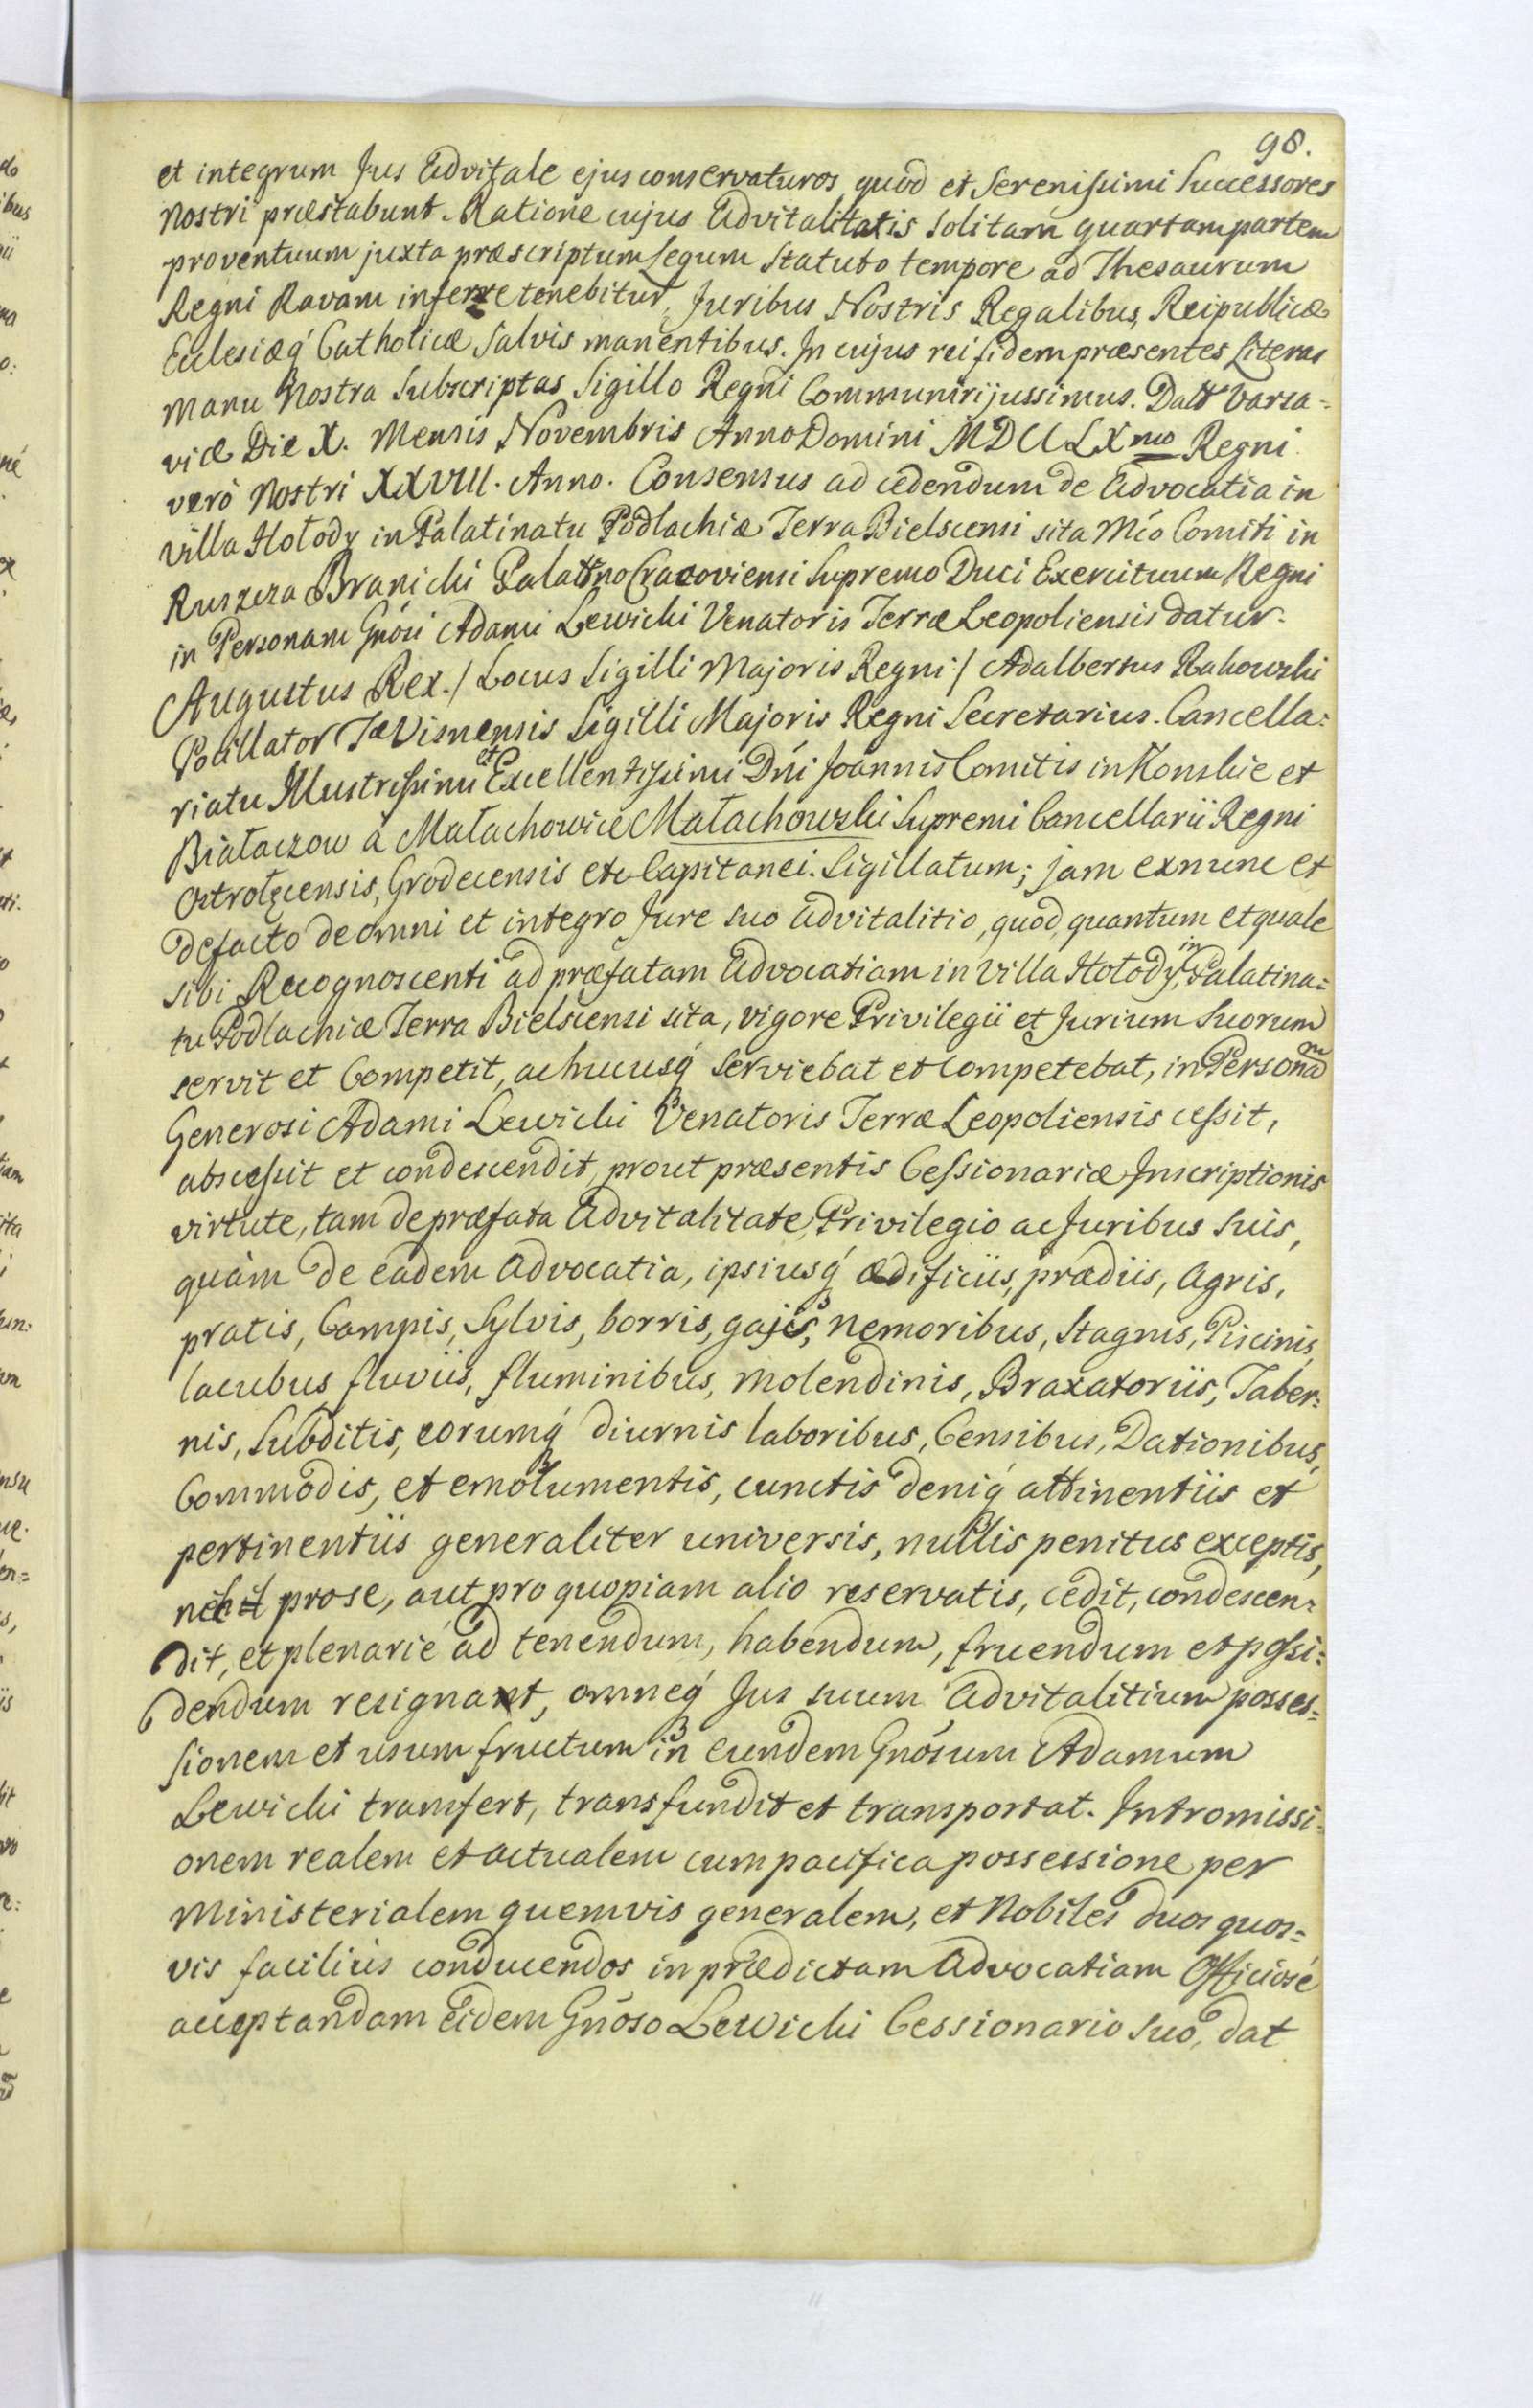 98.
et integrum Jus Advitale ejus conservaturos quod et Serenissimi Successores
Nostri præstabunt. Ratione cujus Advitalitatis Solitam quartam partem
proventuum juxta præscriptum Legum Statuto tempore ad Thesaurum
Regni Ravam inferre tenebitur, Juribus Nostris Regalibus, Reipublicæ
Eclesiæq́ Catholicæ Salvis manentibus. In cujus rei fidem præsentes Literas
Manu Nostra Subscriptas Sigillo Regni Communiri jussimus. Datt Varsa=
viæ Die X. Mensis Novembris Anno Domini MDCCLXmo Regni
verò Nostri XXVIII. Anno. Consensus ad cedendum de Advocatia in
villa Hołody in Palatinatu Podlachiæ Terra Bielscensi sita Mćo Comiti in
Ruszcza Branicki Palatino Cracoviensi Supremo Duci Exercituum Regni
in Personam Gńosi Adami Lewicki Venatoris Terræ Leopoliensis datur.
Augustus Rex. / Locus Sigilli Majoris Regni / Adalbertus Rakowski
Pocillator Tæ Visnensis Sigilli Majoris Regni Secretarius. Cancella=
riatu Illustrissimi et Excellentissimi Dńi Joannis Comitis in Konskie et
Białaczow a Małachowice Małachowski Supremi Cancellarii Regni
Ostrołęcensis, Grodecensis etc Capitanei. Sigillatum; jam exnunc et
defacto de omni et integro Jure suo advitalitio, quod, quantum et quale
sibi Recognoscenti ad præfatam Advocatiam in Villa Hołody, in Palatina=
tu Podlachiæ Terra Bielscensi sita, vigore Privilegii et Jurium Suorum
servit et Competit, ac hucusq́ serviebat et competebat, in Personam
Generosi Adami Lewicki Venatoris Terræ Leopoliensis cessit,
abscessit et condescendit, prout præsentis Cessionariæ Inscriptionis
virtute, tam de præfata Advitalitate, Privilegio ac Juribus Suis,
quàm de eadem Advocatia, ipsiusq́ ædificiis, prædiis, Agris,
pratis, Campis, Sylvis, borris, gajis, Nemoribus, Stagnis, Piscinis,
lacubus fluviis, fluminibus, molendinis, Braxatoriis, Taber=
nis, Subditis, eorumq́ diurnis laboribus, Censibus, Dationibus,
Commodis, et emolumentis, cunctis deniq́ attinentiis et
pertinentiis generaliter universis, nullis penitus exceptis,
nihil pro se, aut pro quopiam alio reservatis, cedit, condescen=
dit, et plenariè ad tenendum, habendum, fruendum et possi=
dendum resignat, omneq́ Jus suum Advitalitium posses=
sionem et usum fructum in eundem Gńosum Adamum
Lewicki transfert, transfundit et transportat. Intromissi=
onem realem et actualem cum pacifica possessione per
Ministerialem quemvis generalem, et Nobiles duos quos=
vis faciliùs conducendos in prædictam Advocatiam Officiosè
acceptandam Eidem Gńoso Lewicki Cessionario suo, dat